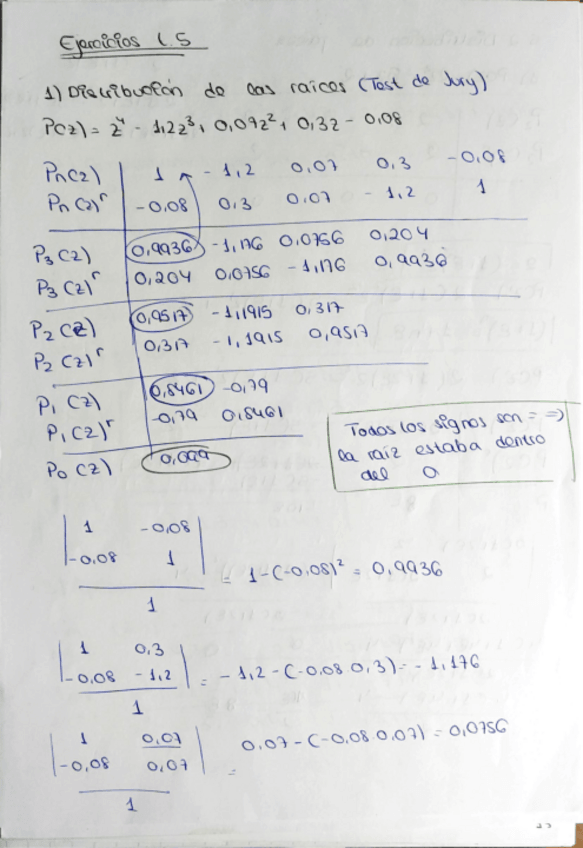 Ejercicios 1.5
1) Distribución de las raíces (Test de Jury)
P(z) = z⁴ - 1,2z³ + 0,07z² + 0,3z - 0,08
Pn(z) 1 -1,2 0,07 0,3 -0,08
Pn(z)ʳ -0,08 0,3 0,07 -1,2 1
P₃(z) 0,9936 -1,176 0,0756 0,204
P₃(z)ʳ 0,204 0,0756 -1,176 0,9936
P₂(z) 0,9517 -1,1915 0,317
P₂(z)ʳ 0,317 -1,1915 0,9517
P₁(z) 0,8461 -0,79
P₁(z)ʳ -0,79 0,8461
P₀(z) 0,099
Todos los signos son = =>
la raíz estaba dentro
del O
1 -0,08
-0,08 1
1
= 1-(-0,08)² = 0,9936
1 0,3
-0,08 -1,2
1
= -1,2-(-0,08 0,3) = -1,176
1 0,07
-0,08 0,07
1
= 0,07-(-0,08 0,07) = 0,0756